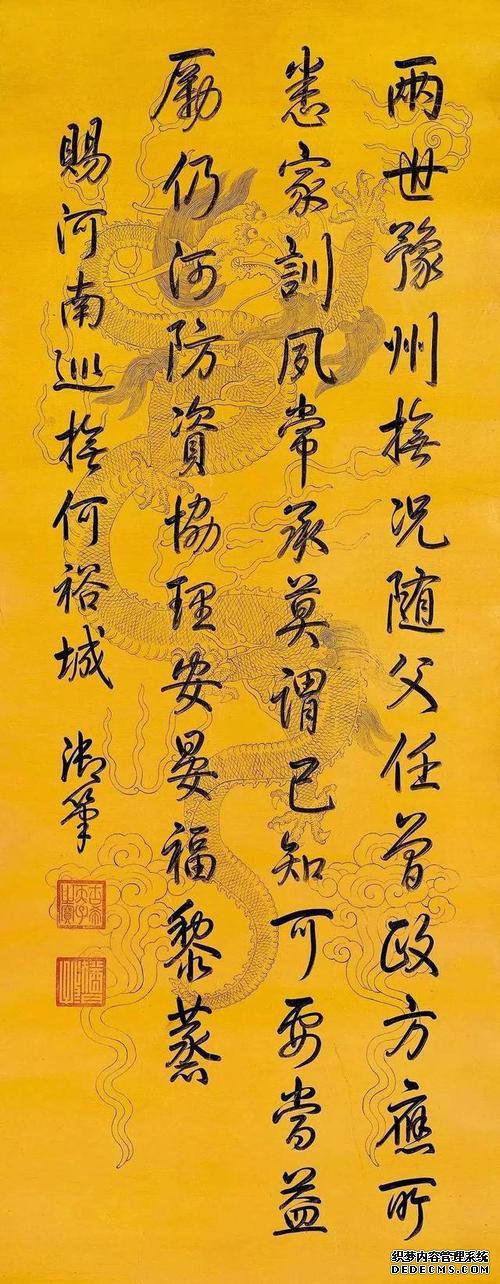 兩世豫州撫況随父任曾政方應所
悉家訓夙常承莫謂已知可要當益
勵仍河防資協理安晏福黎蒸
賜河南巡撫何裕城 御筆
织梦内容管理系统
DEDECMS.COM